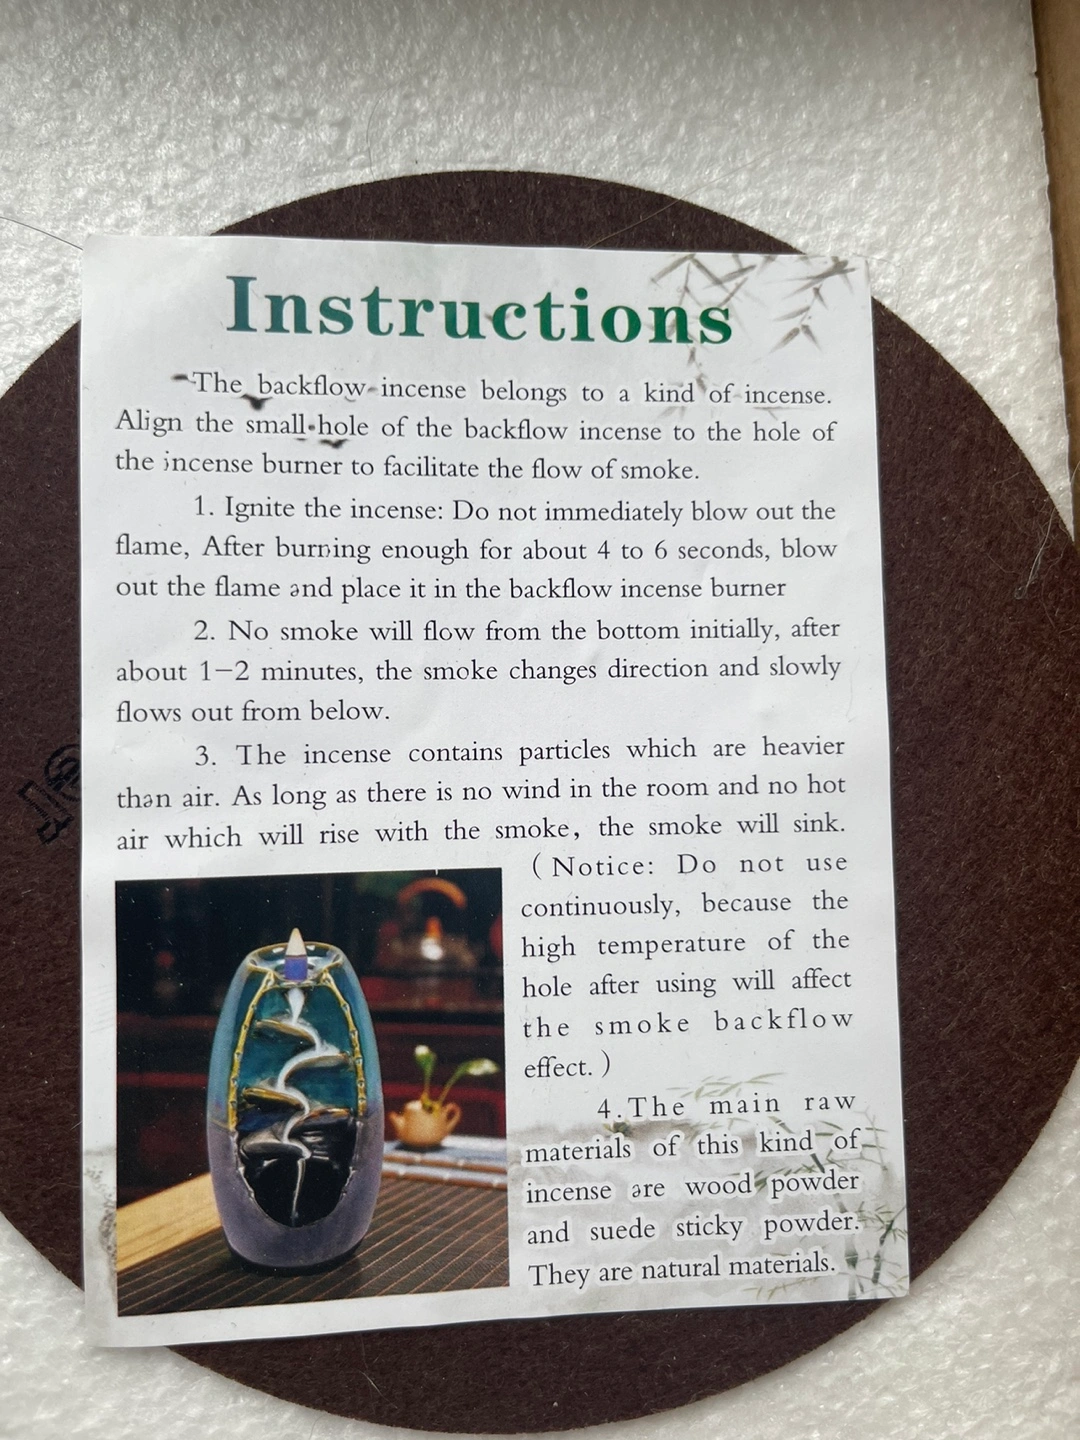 Instructions
The backflow incense belongs to a kind of incense.
Align the small hole of the backflow incense to the hole of
the incense burner to facilitate the flow of smoke.
1. Ignite the incense: Do not immediately blow out the
flame, After burning enough for about 4 to 6 seconds, blow
out the flame and place it in the backflow incense burner
2. No smoke will flow from the bottom initially, after
about 1–2 minutes, the smoke changes direction and slowly
flows out from below.
3. The incense contains particles which are heavier
than air. As long as there is no wind in the room and no hot
air which will rise with the smoke, the smoke will sink.
(Notice: Do not use
continuously, because the
high temperature of the
hole after using will affect
the smoke backflow
effect.)
4.The main raw
materials of this kind of
incense are wood powder
and suede sticky powder.
They are natural materials.